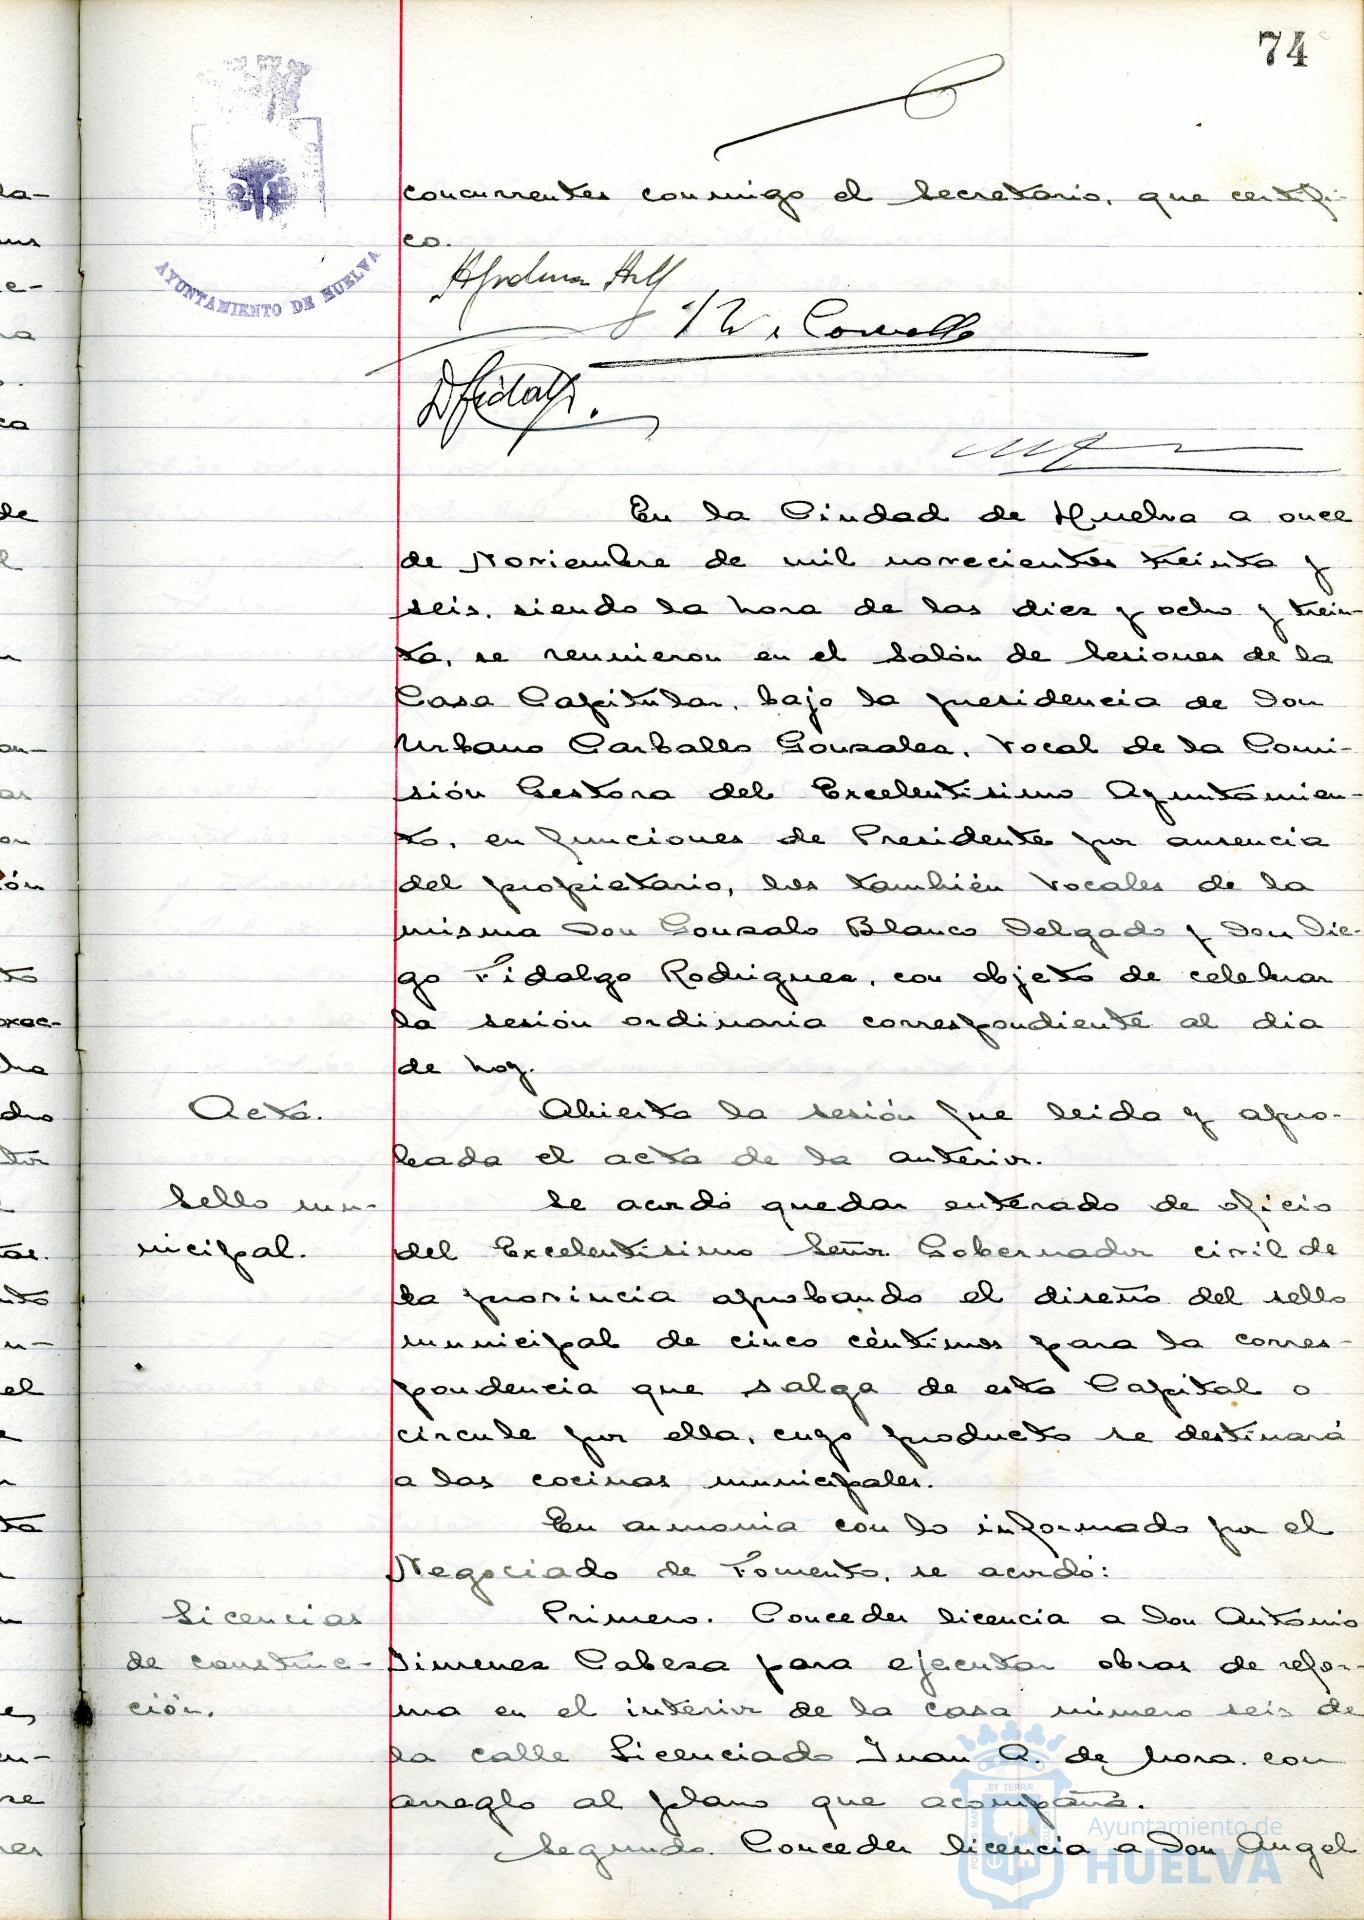 74
AYUNTAMIENTO DE HUELVA
concurrentes conmigo el Secretario, que certifi-
co.
En la Ciudad de Huelva a once
de Noviembre de mil novecientos treinta y
seis, siendo la hora de las diez y ocho y trein-
ta, se reunieron en el Salón de Sesiones de la
Casa Capitular, bajo la presidencia de Don
Urbano Carballo Gonzalez, Vocal de la Comi-
sión Gestora del Excelentisimo Ayuntamien-
to, en funciones de Presidente por ausencia
del propietario, los también Vocales de la
misma Don Gonzalo Blanco Delgado y Don Die-
go Fidalgo Rodriguez, con objeto de celebrar
la sesión ordinaria correspondiente al dia
de hoy.
Acta.
Abierta la sesión fue leida y apro-
bada el acta de la anterior.
Sello mu-
nicipal.
Se acordó quedar enterado de oficio
del Excelentisimo Señor Gobernador civil de
la provincia aprobando el diseño del sello
municipal de cinco céntimos para la corres-
pondencia que salga de esta Capital o
circule por ella, cuyo producto se destinará
a las cocinas municipales.
En armonia con lo informado por el
Negociado de Fomento, se acordó:
Licencias
de construc-
ción.
Primero. Conceder licencia a Don Antonio
Jimenez Cabeza para ejecutar obras de refor-
ma en el interior de la casa número seis de
la calle Licenciado Juan A. de Mora, con
arreglo al plano que acompaña.
Segundo. Conceder licencia a Don Angel
Ayuntamiento de
HUELVA